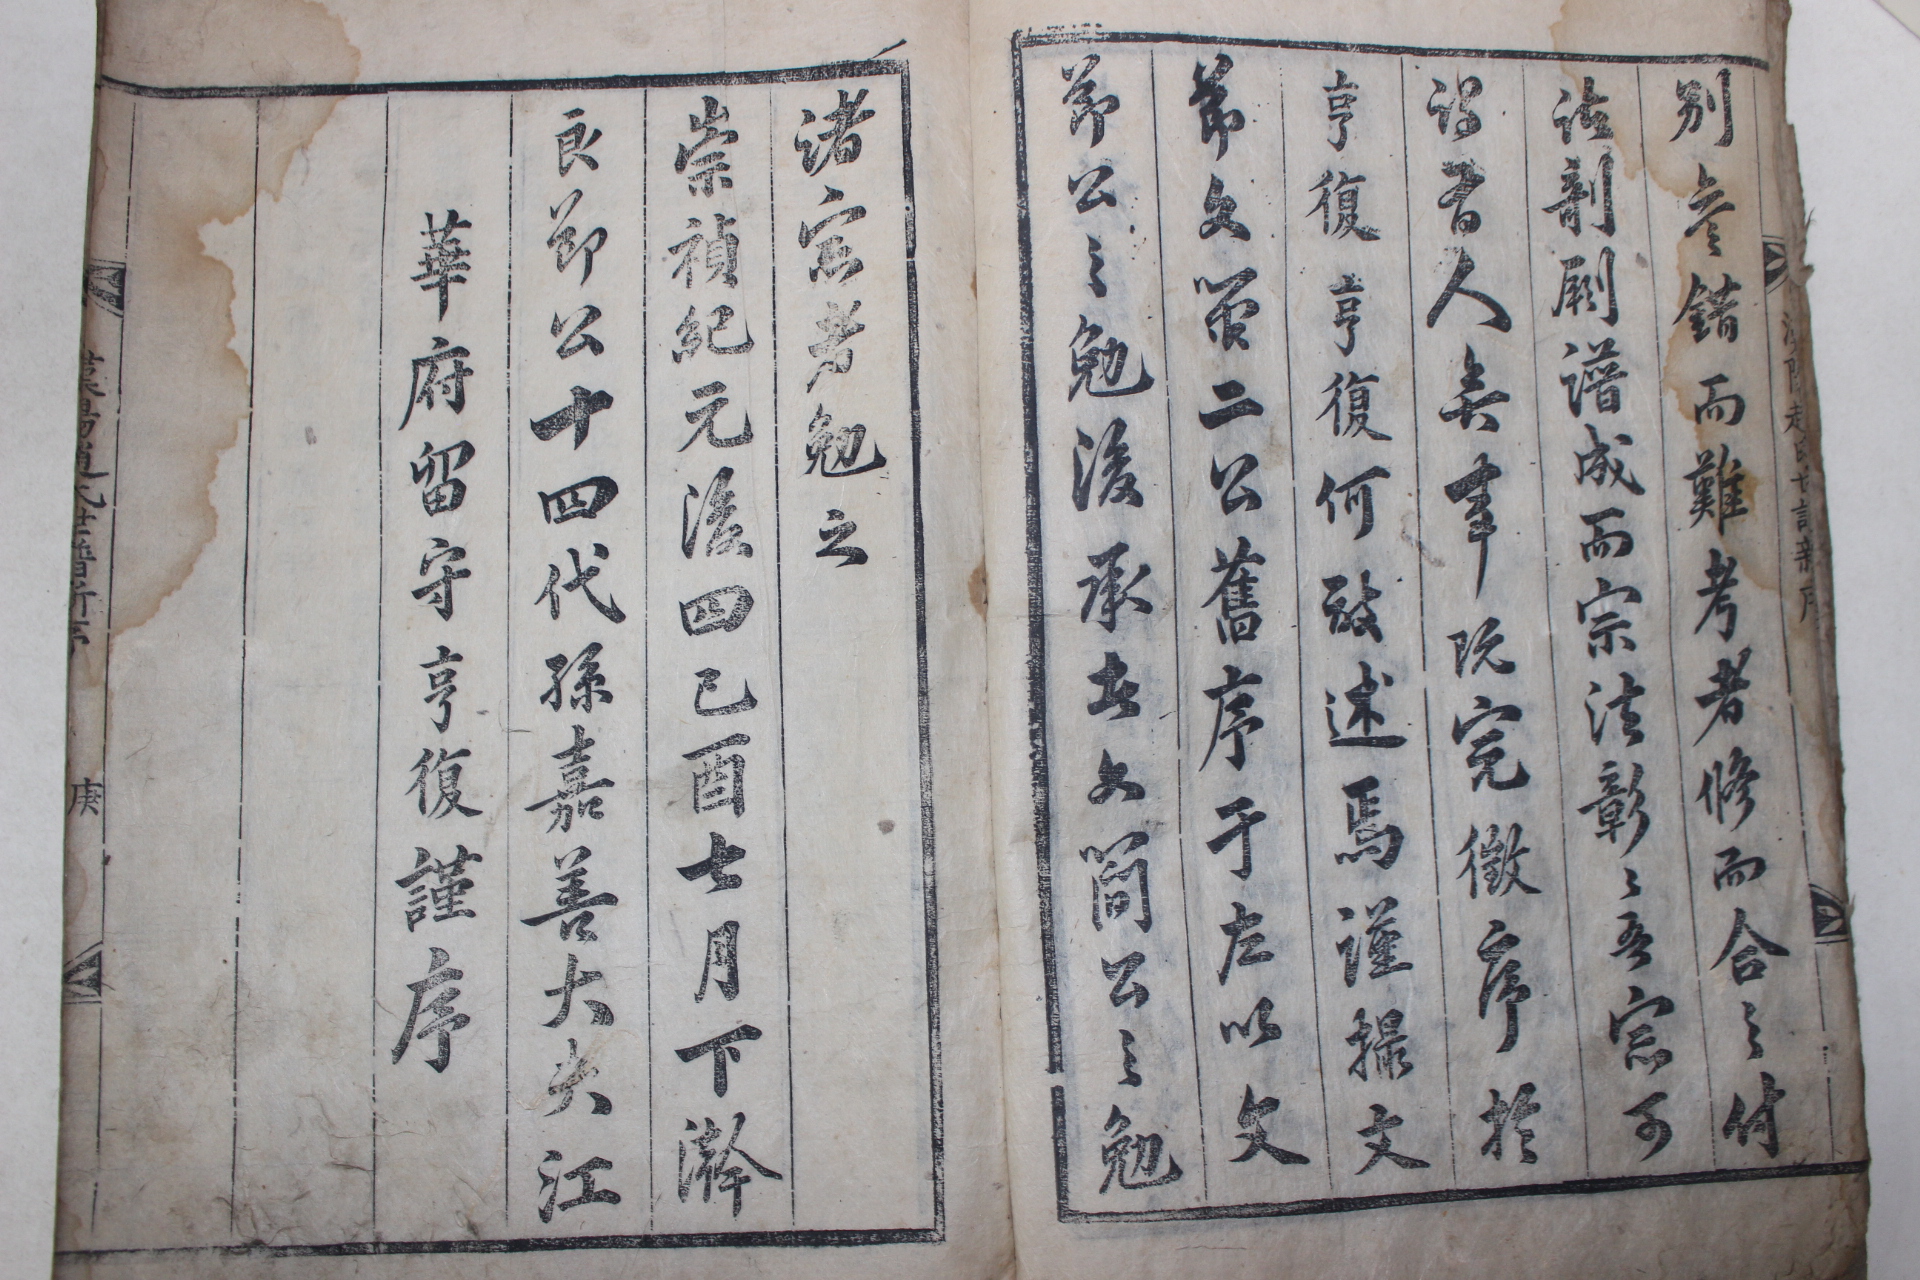 別參錯而難考者修而合之付
諸剞劂譜成而宗法彰〻吾宗可
謂有人矣事既完徵序於
亨復亨復何敢述焉謹撮文
節文簡二公舊序于左以文
節公之勉後承者文簡公之勉
諸宗者勉之
崇禎紀元後四己酉七月下澣
良節公十四代孫嘉善大夫江
華府留守亨復謹序
漢陽趙氏世譜新序
庚